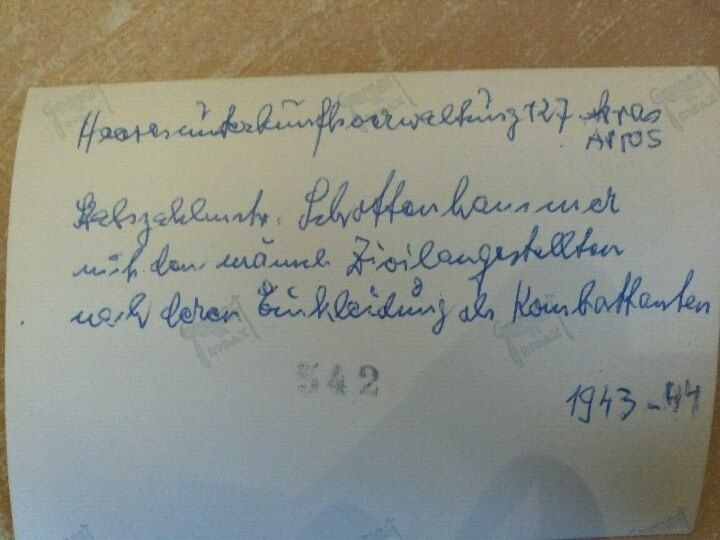 Heeresunterkunftsverwaltung 127 Arras
Arras
Stabszahlmstr. Schottenhammer
mit den männl. Zivilangestellten
nach deren Einkleidung als Kombattanten
542
1943-44